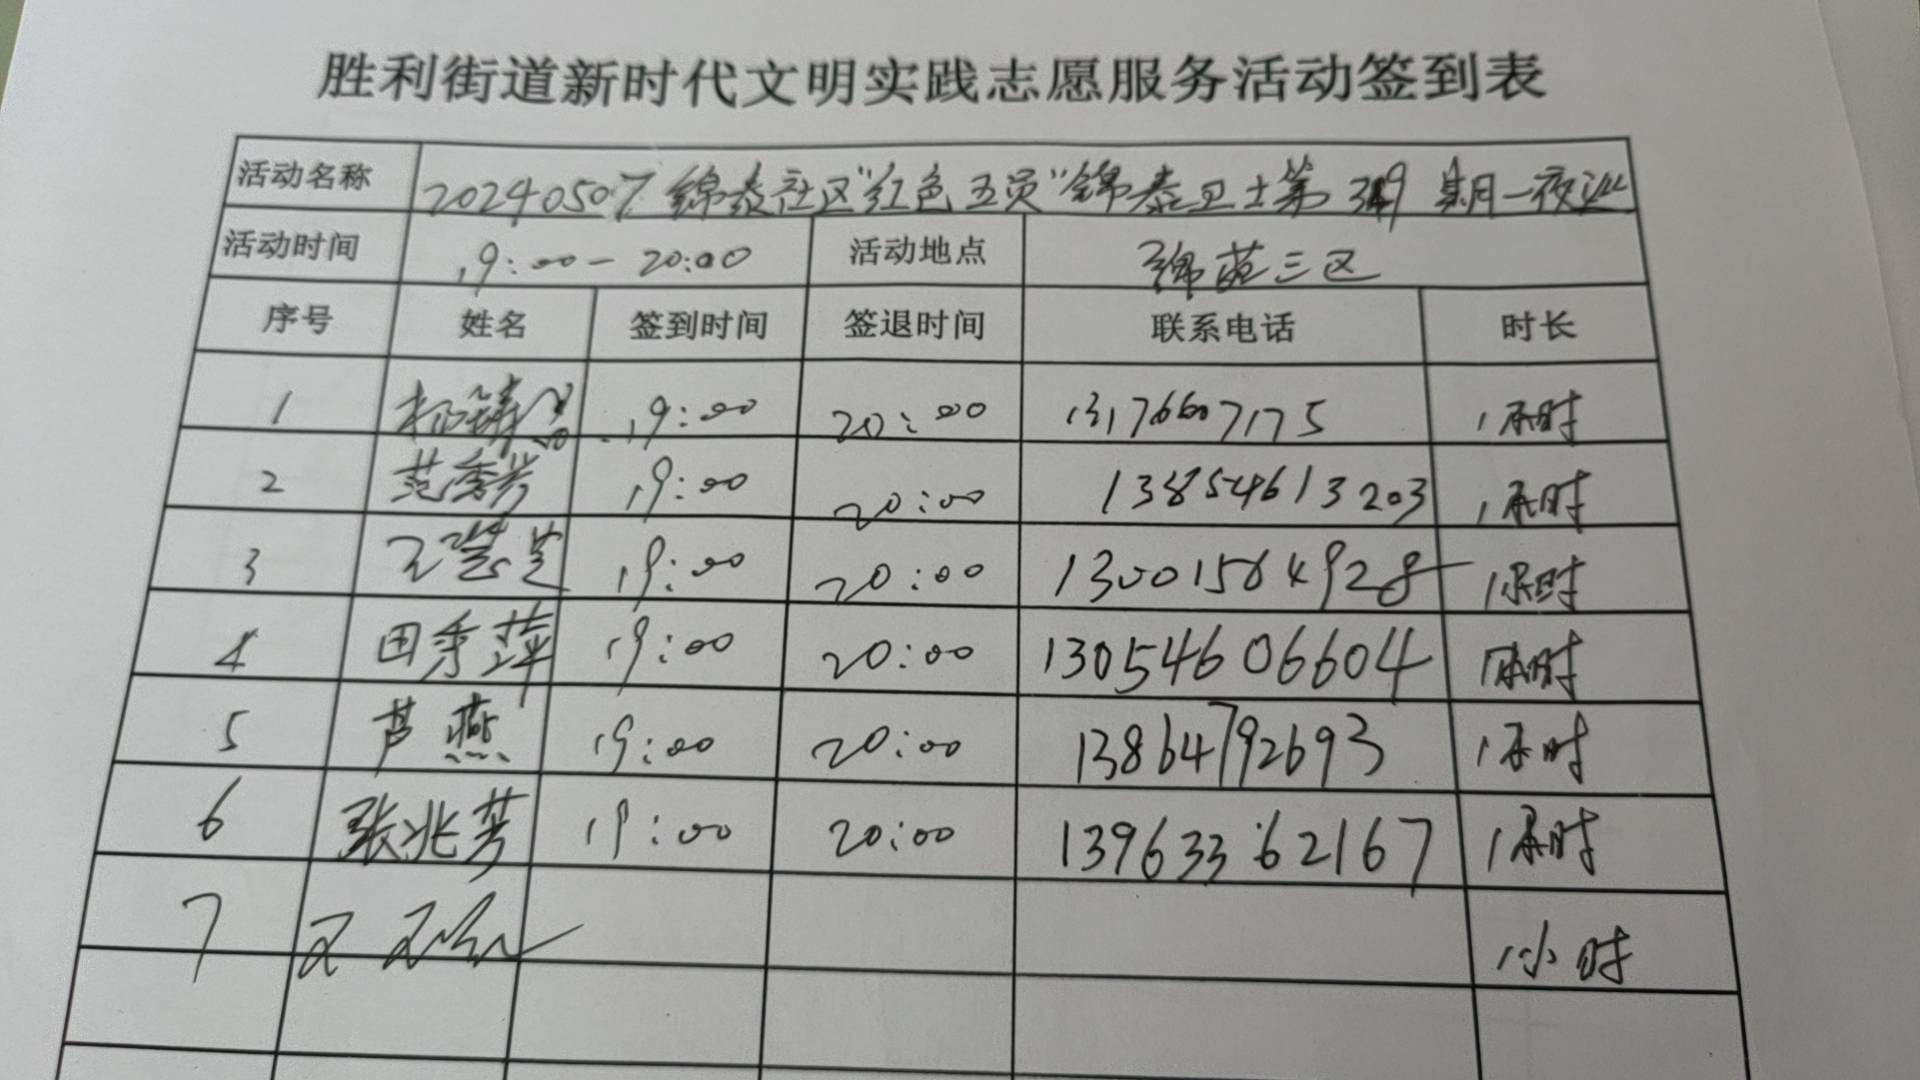 胜利街道新时代文明实践志愿服务活动签到表
活动名称 20240507 锦泰社区"红色五员"锦泰卫士第 期一夜巡
活动时间 19:00-20:00 活动地点 锦苑三区
序号 姓名 签到时间 签退时间 联系电话 时长
1 19:00 20:00 13176607175 1小时
2 范秀芳 19:00 20:00 13854613203 1小时
3 19:00 20:00 13001564928 1小时
4 田秀萍 19:00 20:00 13054606604 1小时
5 芦燕 19:00 20:00 13864792693 1小时
6 张兆芳 19:00 20:00 13963362167 1小时
7 1小时